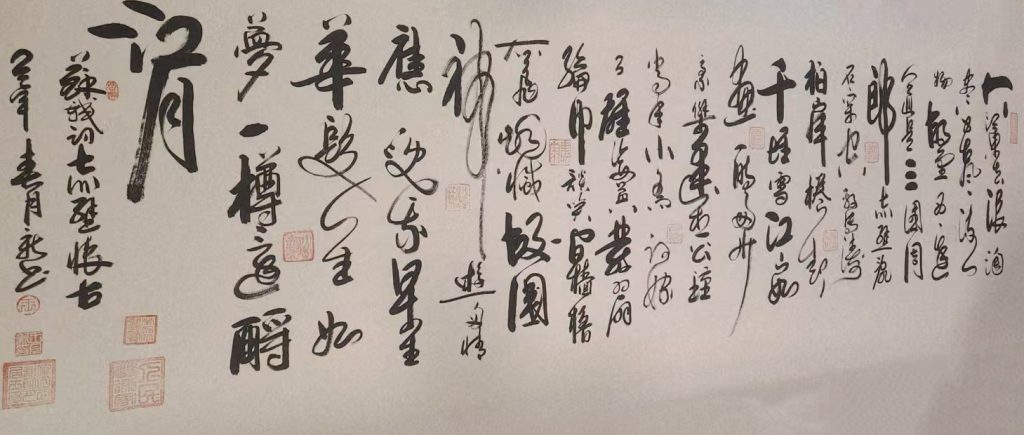 大江東去浪淘
盡千古風流人
物故壘西邊
人道是三國周
郎赤壁亂
石穿空驚濤
拍岸捲起
千堆雪江山如
畫一時多少
豪傑遙想公瑾
當年小喬初嫁
了雄姿英發羽扇
綸巾談笑間檣櫓
灰飛煙滅故國
神遊多情
應笑我早生
華髮人生如
夢一樽還酹
江月
蘇軾詞赤壁懷古
年春月書